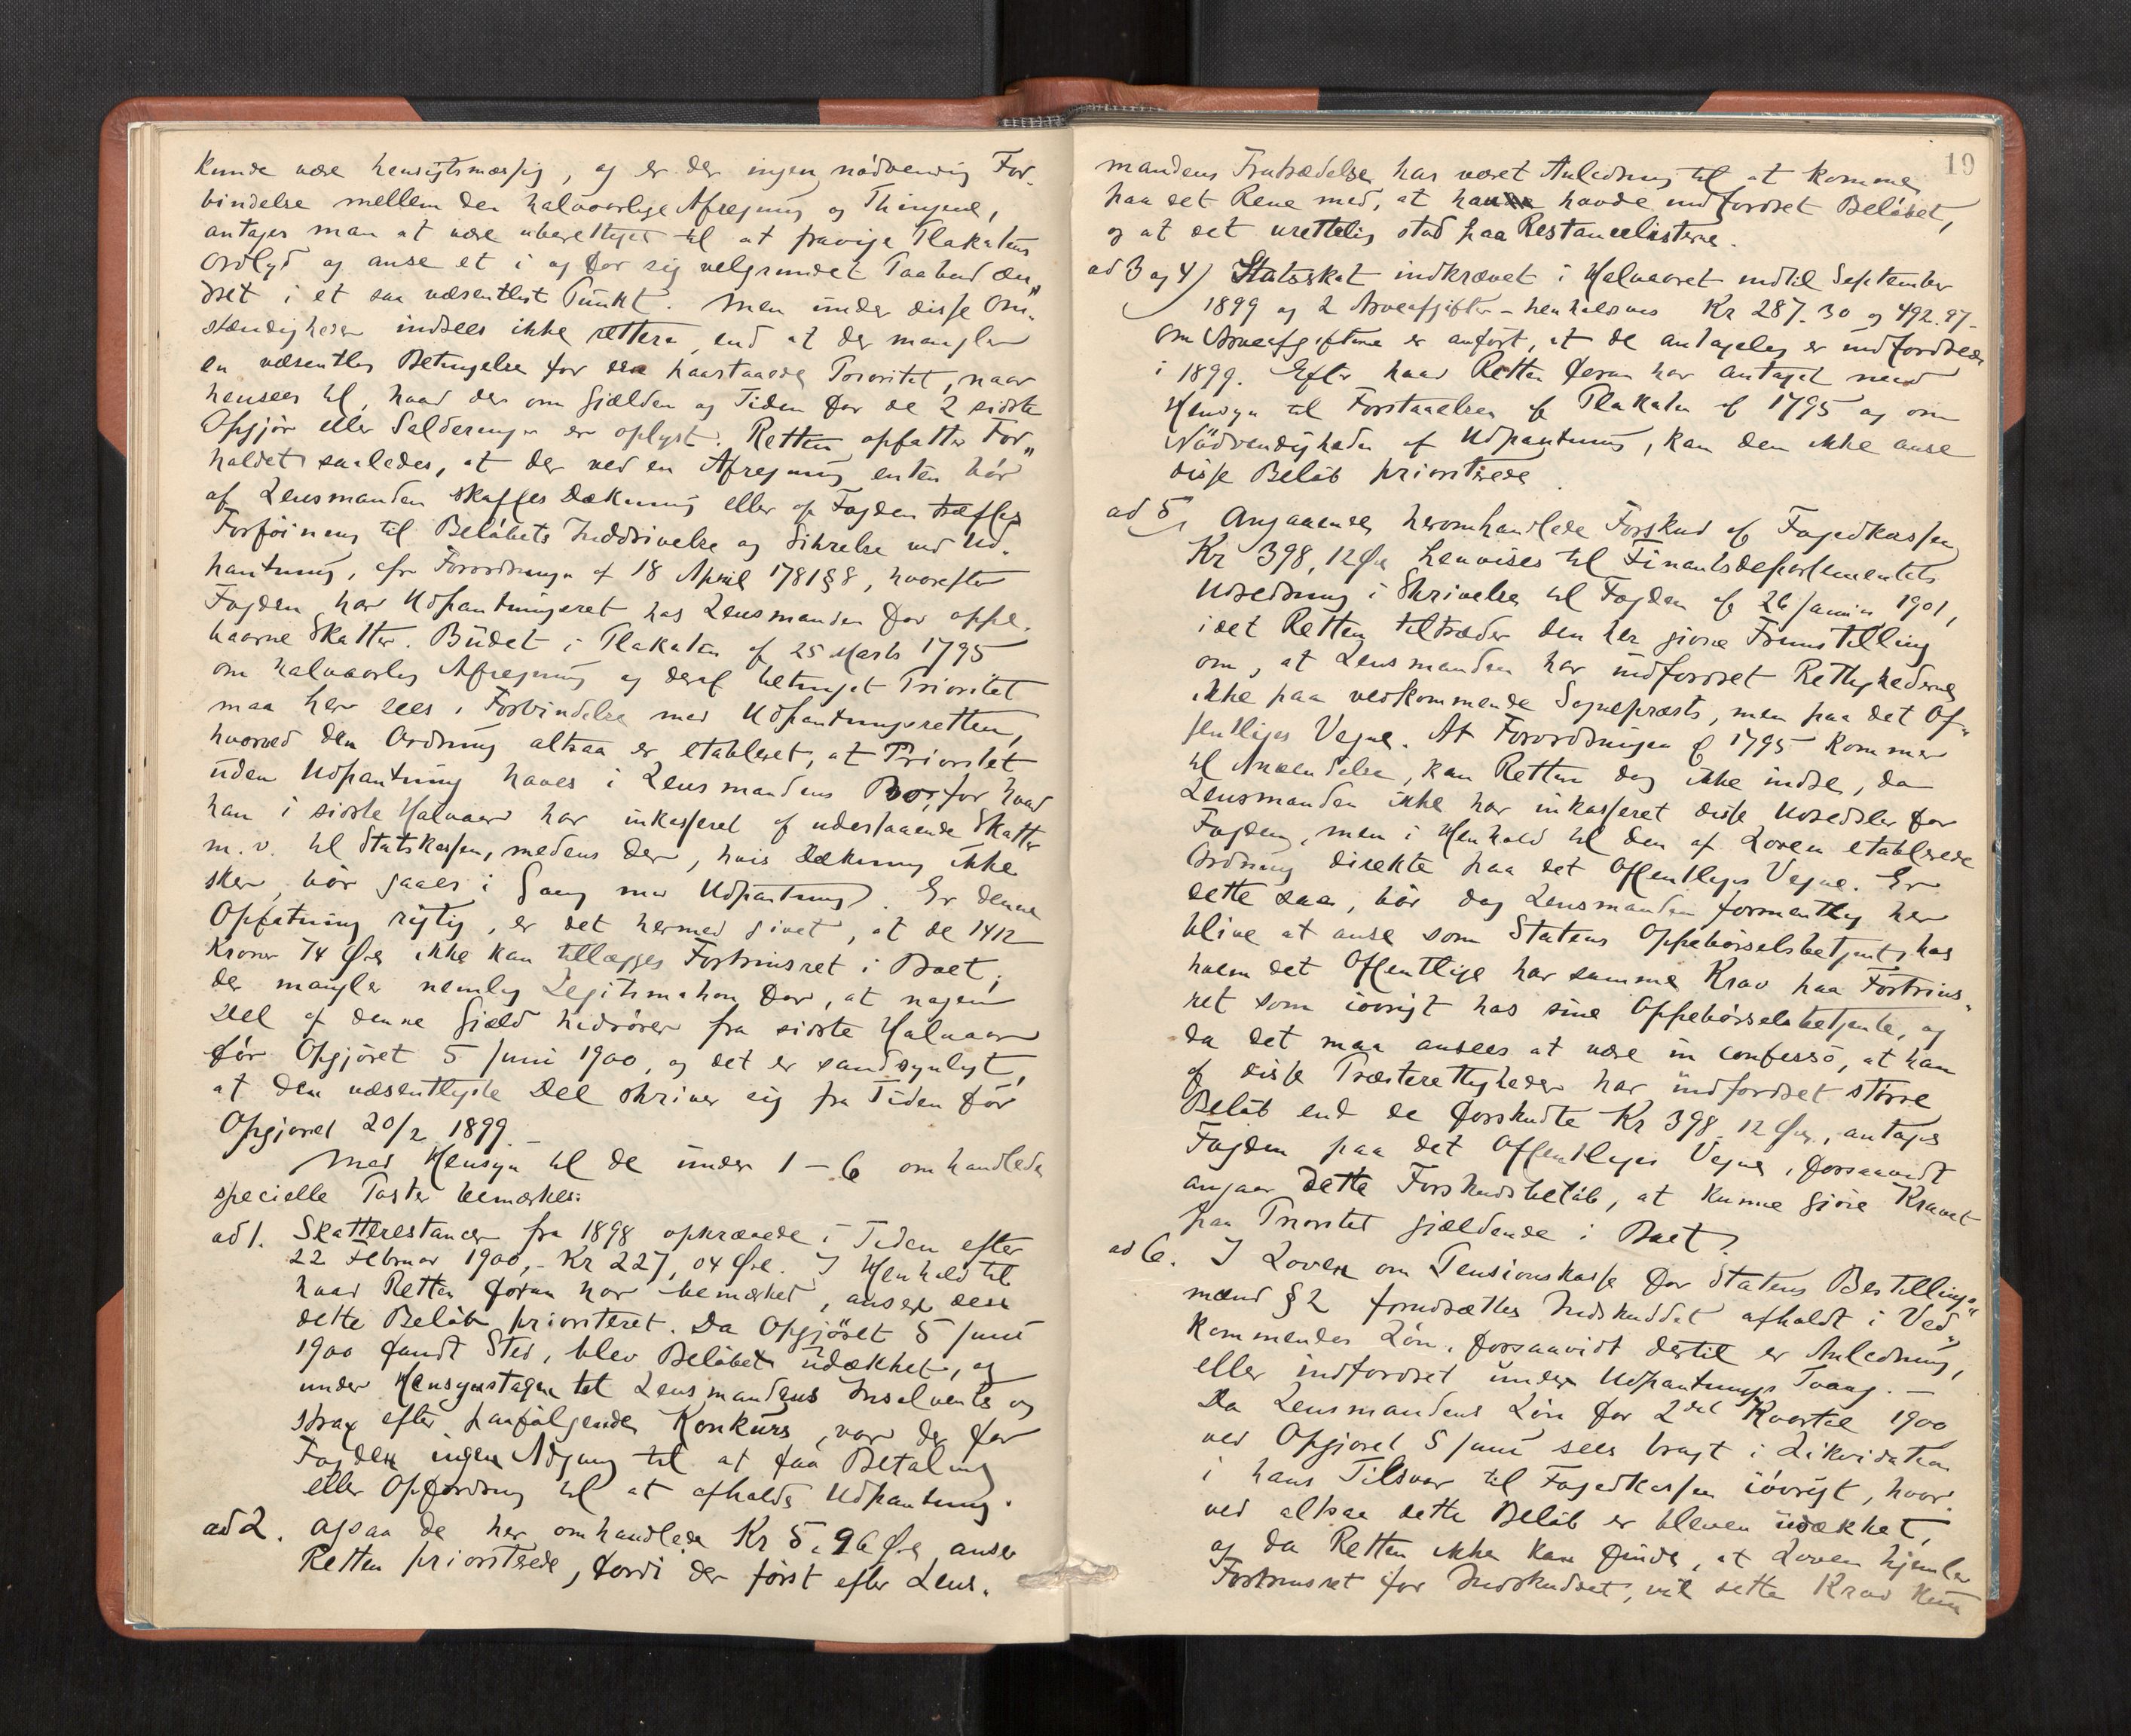 kunde være hensigtsmæssig, og er der ingen nødvendig For-
bindelse mellem den halvaarlige Afregning og Thingene,
antages man at være uberettiget til at fravige Plakatens
Ordlyd og anse et i og for sig velgrundet Paabud æn„
dret i et saa væsentligt Punkt. Men under disse Om-
stændigheder indsees ikke rettere, end at der mangler
en væsentlig Betingelse for den paastaaede Prioritet, naar
hensees til, hvad der om Gjælden og Tiden for de 2 sidste
Opgjør eller Salderinger er oplyst. Retten opfatter For„
holdet saaledes, at der ved en Afregning enten bør
af Lensmanden skaffes Dækning eller af Fogden træffes
Forføining til Beløbets Inddrivelse og Sikrelse ved Ud-
pantning, cfr Forordningen af 18 April 1781 § 8, hvorefter
Fogden har Udpantningsret hos Lensmanden for oppe-
baarne Skatter. Budet i Plakaten af 25 Marts 1795
om halvaarlig Afregning og deraf betinget Prioritet
maa her sees i Forbindelse med Udpantningsretten,
hvorved den Ordning altsaa er etableret, at Prioritet
uden Udpantning haves i Lensmandens Bo, for hvad
han i sidste Halvaar har inkasseret af udestaaende Skatter
m. v. til Statskassen, medens der, hvis Dækning ikke
sker, bør gaaes i Gang med Udpantning. Er denne
Opfatning rigtig, er det hermed givet, at de 1412
Kroner 74 Øre ikke kan tillægges Fortrinsret i Boet;
der mangler nemlig Legitimation for, at nogen
Del af denne Gjæld hidrører fra sidste Halvaar
før Opgjøret 5 Juni 1900, og det er sandsynligt,
at den væsentligste Del skriver sig fra Tiden før
Opgjøret 20/2 1899. –
Med Hensyn til de under 1 – 6 omhandlede
specielle Poster bemærkes:
ad 1. Skatterestancer fra 1898 opkrævede i Tiden efter
22 Februar 1900, – Kr 227, 04 Øre. I Henhold til
hvad Retten foran har bemærket, anser den
dette Beløb prioriteret. Da Opgjøret 5 Juni
1900 fandt Sted, blev Beløbet udækket, og
under Hensynstagen til Lensmandens Insolvents og
strax efter paafølgende Konkurs, var der for
Fogden ingen Adgang til at faa Betaling
eller Opfordring til at afholde Udpantning.
ad 2. Ogsaa de her omhandlede Kr 5. 96 Øre anser
Retten prioriterede, fordi der først efter Lens-
19
mandens Fratrædelse har været Anledning til at komme
paa det Rene med, at han havde indfordret Beløbet,
og at det urettelig stod paa Restancelisterne.
ad 3 og 4) Statsskat indkrævet i Halvaaret indtil September
1899 og 2 Arveafgifter – henholdsvis Kr 287. 30 og 492. 97 –
Om Arveafgifterne er anført, at de antagelig er indfordrede
i 1899. Efter hvad Retten foran har antaget med
Hensyn til Forstaaelsen af Plakaten af 1795 og om
Nødvendigheden af Udpantning, kan den ikke anse
disse Beløb prioriterede.
ad 5, Angaaende heromhandlede Forskud af Fogedkassen
Kr 398, 12 Øre henvises til Finantsdepartementets
Udredning i Skrivelse til Fogden af 26 Januar 1901,
idet Retten tiltræder den her givne Fremstilling
om, at Lensmanden har indfordret Rettighederne
ikke paa vedkommende Sognepræsts, men paa det Of„
fentliges Vegne. At Forordningen af 1795 kommer
til Anvendelse, kan Retten dog ikke indse, da
Lensmanden ikke har inkasseret disse Udredsler for
Fogden, men i Henhold til den af Loven etablerede
Ordning direkte paa det Offentliges Vegne. Er
dette saa, bør dog Lensmanden formentlig her
blive at anse som Statens Oppebørselsbetjent, hos
hvem det Offentlige har samme Krav paa Fortrins„
ret som iøvrigt hos sine Oppebørselsbetjente, og
da det maa ansees at være in confesso, at han
af disse Præsterettigheder har indfordret større
Beløb end de forskudte Kr 398. 12 Øre, antages
Fogden paa det Offentliges Vegne, forsaavidt
angaar dette Forskudsbeløb, at kunne gjøre Kravet
paa Prioritet gjældende i Boet.
ad 6. I Loven om Pensionskasse for Statens Bestillings„
mænd § 2 forudsættes Indskuddet afholdt i Ved„
kommendes Løn, forsaavidt dertil er Anledning,
eller indfordret under Udpantnings Tvang. –
Da Lensmandens Løn for 2det Kvartal 1900
ved Opgjøret 5 Juni sees bragt i Likvidation
i hans Tilsvar til Fogedkassen iøvrigt, hvor-
ved altsaa dette Beløb er bleven udækket,
og da Retten ikke kan finde, at Loven hjemler
Fortrinsret for Indskuddet, vil dette Krav kun